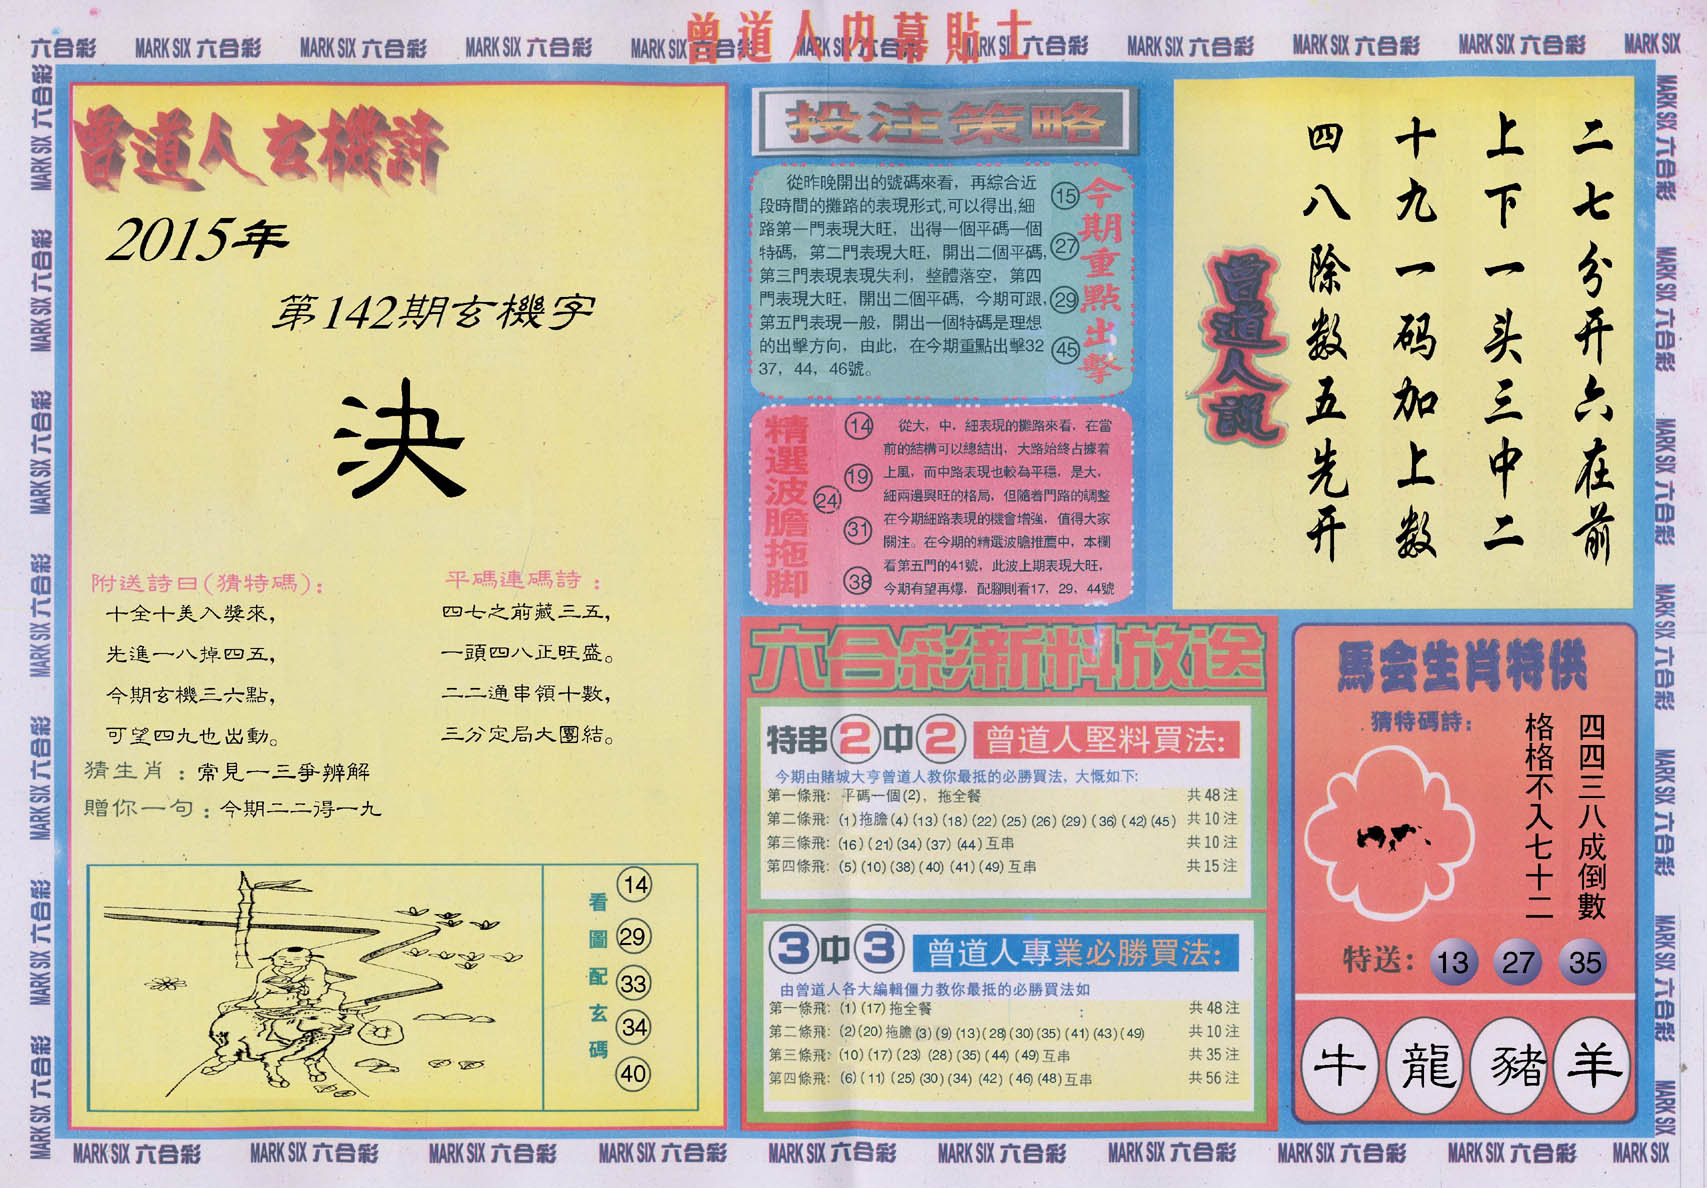 曾道人内幕貼士
六合彩 MARK SIX 六合彩 MARK SIX 六合彩 MARK SIX 六合彩 MARK SIX 六合彩 MARK SIX 六合彩 MARK SIX 六合彩 MARK SIX 六合彩 MARK SIX 六合彩 MARK SIX 六合彩 MARK SIX
曾道人玄機詩
2015年
第142期玄機字
決
附送詩曰(猜特碼):
十全十美入獎來,
先進一八掉四五,
今期玄機三六點,
可望四九也出動。
平碼連碼詩:
四七之前藏三五,
一頭四八正旺盛。
二二通串領十數,
三分定局大團結。
猜生肖:常見一三爭辨解
贈你一句:今期二二得一九
看圖配玄碼
14
29
33
34
40
投注策略
從昨晚開出的號碼來看，再綜合近
段時間的攤路的表現形式,可以得出,細
路第一門表現大旺，出得一個平碼一個
特碼，第二門表現大旺，開出二個平碼,
第三門表現表現失利，整體落空，第四
門表現大旺，開出二個平碼，今期可跟,
第五門表現一般，開出一個特碼是理想
的出擊方向，由此，在今期重點出擊32
37，44，46號。
今期重點出擊
15
27
29
45
精選波膽拖脚
14
19
24
31
38
從大，中，細表現的攤路來看，在當
前的結構可以總結出，大路始終占據着
上風，而中路表現也較為平穩，是大，
細兩邊興旺的格局，但隨着門路的調整
在今期細路表現的機會增強，值得大家
關注。在今期的精選波膽推薦中，本欄
看第五門的41號，此波上期表現大旺，
今期有望再爆，配腳則看17，29，44號
二七分开六在前
上下一头三中二
十九一码加上数
四八除数五先开
曾道人説
六合彩新料放送
特串2中2 曾道人堅料買法:
今期由賭城大亨曾道人教你最抵的必勝買法，大慨如下:
第一條飛: 平碼一個(2)，拖全餐 共48注
第二條飛: (1)拖膽(4)(13)(18)(22)(25)(26)(29)(36)(42)(45) 共10注
第三條飛: (16)(21)(34)(37)(44)互串 共10注
第四條飛: (5)(10)(38)(40)(41)(49)互串 共15注
3中3 曾道人專業必勝買法:
由曾道人各大編輯僵力教你最抵的必勝買法如
:
第一條飛: (1)(17)拖全餐 共48注
第二條飛: (2)(20)拖膽(3)(9)(13)(28)(30)(35)(41)(43)(49) 共10注
第三條飛: (10)(17)(23)(28)(35)(44)(49)互串 共35注
第四條飛: (6)(11)(25)(30)(34)(42)(46)(48)互串 共56注
馬会生肖特供
猜特碼詩:
四四三八成倒數
格格不入七十二
特送: 13 27 35
牛 龍 豬 羊
MARK SIX 六合彩 MARK SIX 六合彩 MARK SIX 六合彩 MARK SIX 六合彩 MARK SIX 六合彩 MARK SIX 六合彩 MARK SIX 六合彩 MARK SIX 六合彩 MARK SIX 六合彩 MARK SIX